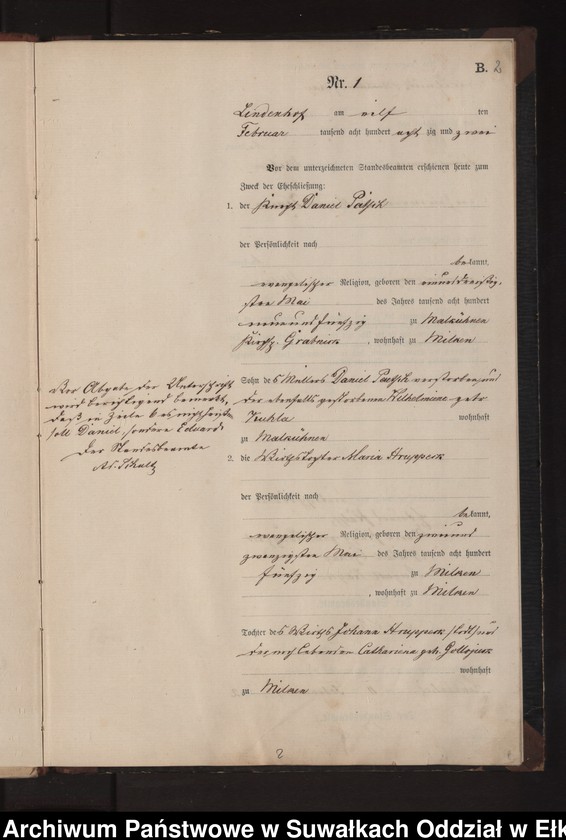 B. 2
Nr. 1
Lindenhof am elf ten
Februar tausend acht hundert acht zig und zwei
Vor dem unterzeichneten Standesbeamten erschienen heute zum
Zweck der Eheschließung:
1. der Knecht Daniel
der Persönlichkeit nach
bekannt,
evangelischer Religion, geboren den einunddreißig
sten Mai des Jahres tausend acht hundert
neunundfünfzig zu Malkühnen
Kirchsp. Grabnick, wohnhaft zu Milken
Vor Abgabe der Unterschrift
wird berichtigend bemerkt,
daß in Zeile 6 es nicht heißen
soll Daniel, sondern Eduard
Der Standesbeamte
Ad. Schultz
Sohn des Müllers Daniel verstorben, und
der ebenfalls gestorbenen Wilhelmine geb.
Kuhla wohnhaft
zu Malkühnen
2. die Wirthstochter Maria
der Persönlichkeit nach
bekannt,
evangelischer Religion, geboren den zweiund
zwanzigsten Mai des Jahres tausend acht hundert
fünfzig zu Milken
, wohnhaft zu Milken
Tochter des Wirths Johann todt und
der noch lebenden Catharina geb.
wohnhaft
zu Milken
2
Archiwum Państwowe w Suwałkach Oddział w Ełk